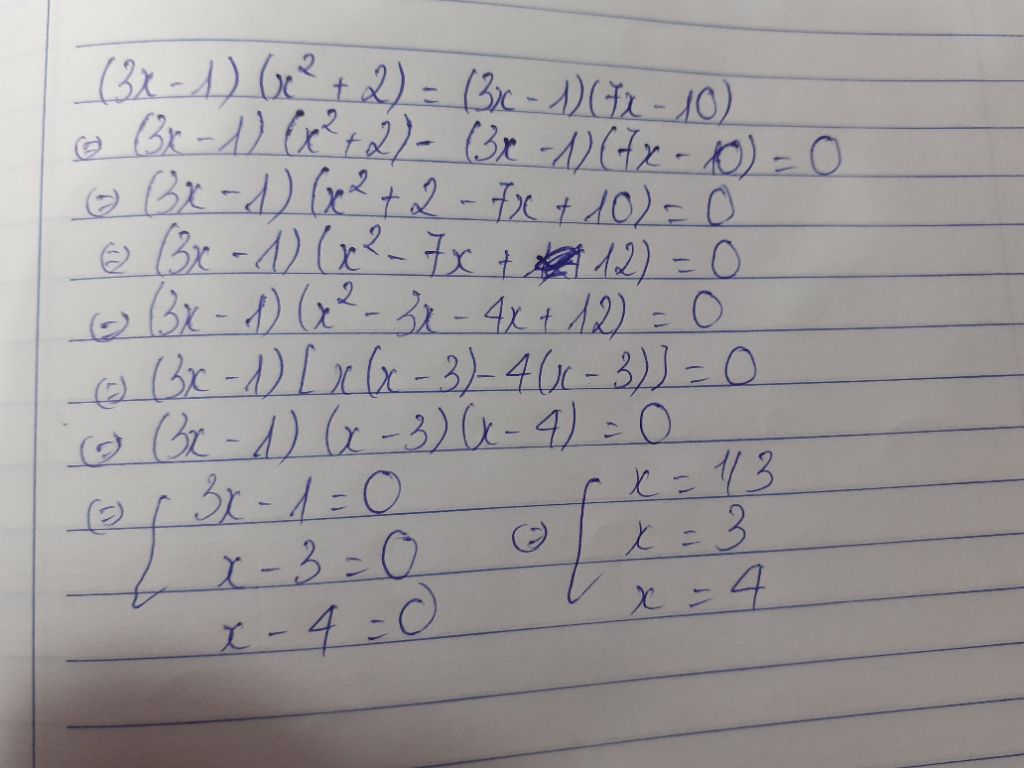 (3x - 1) (x² + 2) = (3x - 1)(7x - 10)
⇔ (3x - 1) (x² + 2) - (3x - 1)(7x - 10) = 0
⇔ (3x - 1) (x² + 2 - 7x + 10) = 0
⇔ (3x - 1) (x² - 7x + 12) = 0
⇔ (3x - 1) (x² - 3x - 4x + 12) = 0
⇔ (3x - 1) [x(x - 3) - 4(x - 3)] = 0
⇔ (3x - 1) (x - 3)(x - 4) = 0
⇔ [ 3x - 1 = 0 ⇔ [ x = 1/3
x - 3 = 0 x = 3
x - 4 = 0 x = 4